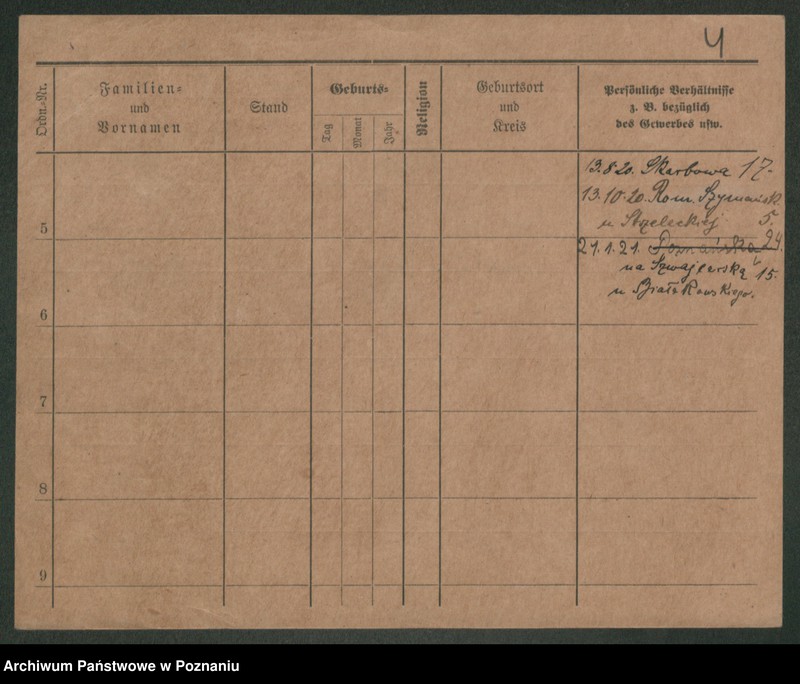 4
Ordn.-Nr.
Familien-
und
Vornamen
Stand
Geburts-
Tag
Monat
Jahr
Religion
Geburtsort
und
Kreis
Persönliche Verhältnisse
z. B. bezüglich
des Gewerbes usw.
13.8.20. Skarbowa 17.
13.10.20. Rom. Szymańsk. 5.
u Strzeleckiej
21.1.21. Poznańska 24
na Szwajcarską 15.
u Białkowskiego.
5
6
7
8
9
Archiwum Państwowe w Poznaniu